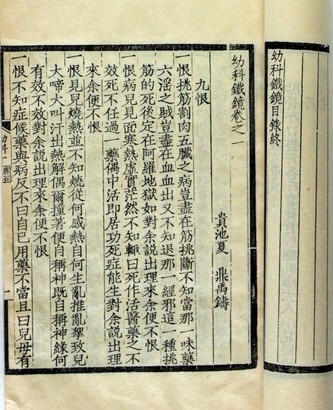 幼科鐵鏡目錄終
幼科鐵鏡卷之一
貴池夏 鼎禹鑄
九恨
一恨挑筋割肉五臟之病豈盡在筋挑斷不知當那一味藥
六淫之賊豈盡在血血出又不知退那一經邪這一種挑
筋的死後定在阿羅地獄如對余說出理來余便不恨
一恨病兒見面寒熱虛實茫然不知輙曰死作活醫藥之不
效死不任過一藥偶中活即居功死症能生對余說出理
來余便不恨
一恨見兒燒熱並不知燒從何感熱自何生亂推亂拏致兒
大啼大叫汗出熱解偶爾撞著便自稱神既自稱神緣何
有效不效對余說出理來余便不恨
一恨不知症候藥與病反不曰自己用藥不當且曰兒母有